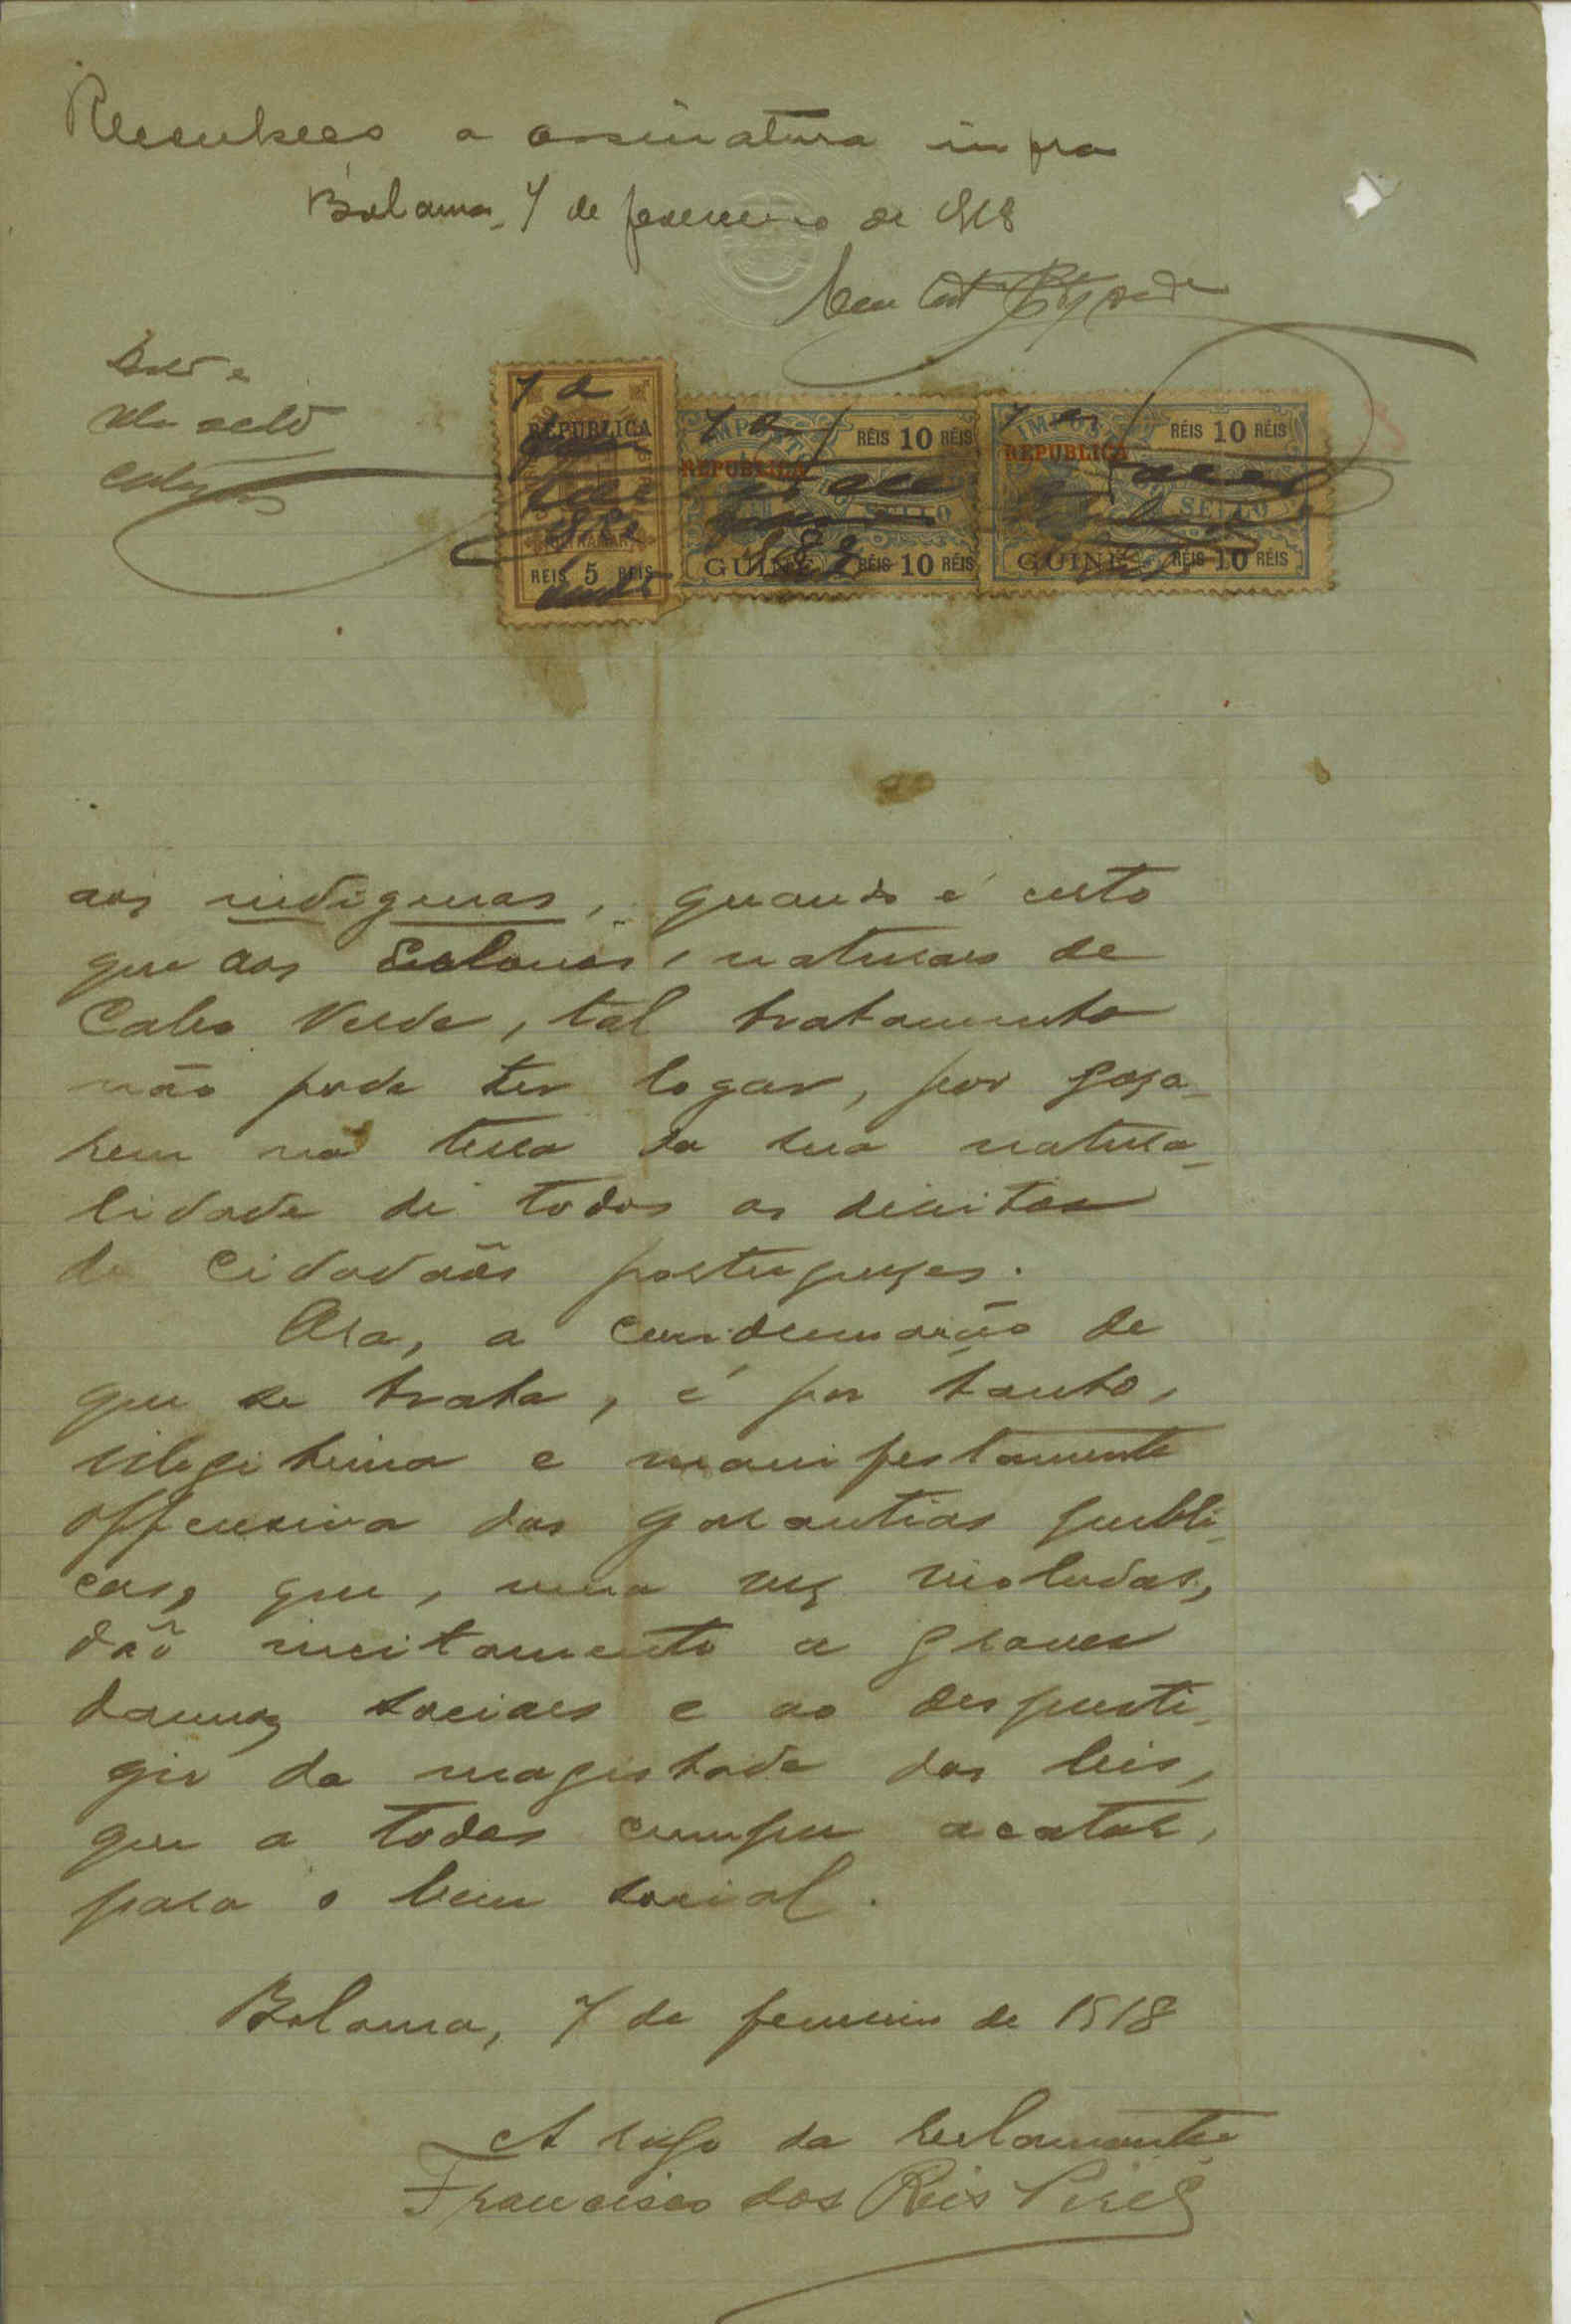 Reconheço a assinatura infra
Bolama, 7 de fevereiro de 1918
REPUBLICA
RÉIS 5 RÉIS
IMPOSTO
RÉIS 10 RÉIS
REPUBLICA
SELLO
GUINÉ RÉIS 10 RÉIS
IMPOSTO
RÉIS 10 RÉIS
REPUBLICA
SELLO
GUINÉ RÉIS 10 RÉIS
aos indigenas, quando é certo
que aos colonos, naturaes de
Cabo Verde, tal tratamento
não pode ter logar, por goza-
rem na terra da sua natura-
lidade de todos os direitos
de Cidadãos portuguezes.
Ora, a condemnação de
que se trata, é por tanto,
illegitima e manifestamente
offensiva das garantias publi-
cas, que, uma vez violadas,
dão incitamento a graves
damnos sociaes e ao despresti-
gio da magestade das leis,
que a todos cumpre acatar,
para o bem social.
Bolama, 7 de fevereiro de 1918
A rogo da reclamante
Francisco dos Reis Pires